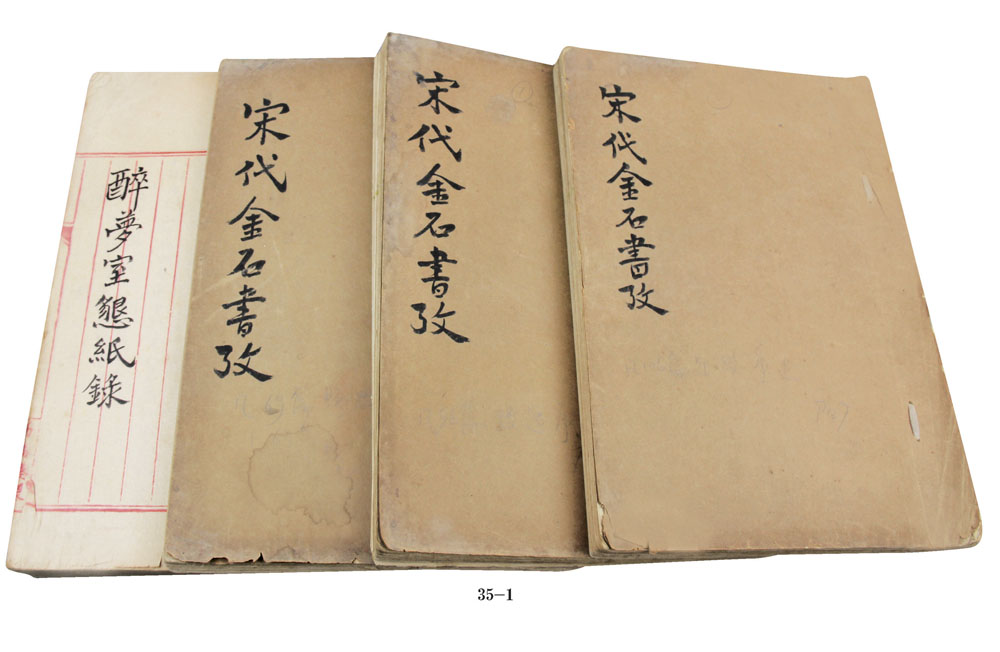 宋代金石書攷
宋代金石書攷
宋代金石書攷
醉夢室懇紙錄
35-1